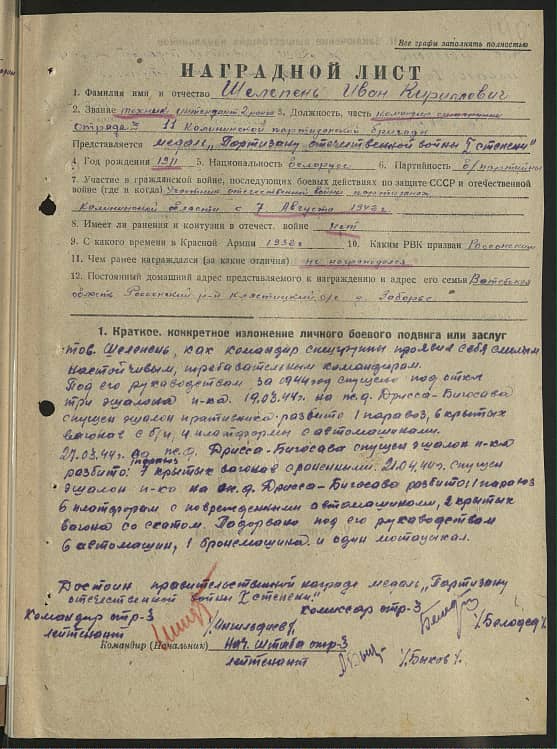 Все графы заполнять полностью
НАГРАДНОЙ ЛИСТ
1. Фамилия имя, и отчество Шелепень Иван Кириллович
2. Звание техник интендант 2 ранга 3. Должность, часть командир спецгруппы
отряда 3 11 Калининской партизанской бригады
Представляется медаль „Партизану отечественной войны I степени"
4. Год рождения 1911 5. Национальность белорус 6. Партийность б/партийный
7. Участие в гражданской войне, последующих боевых действиях по защите СССР и отечественной
войне (где и когда) Участник отечественной войны партизанск
Калининской области с 7 Августа 1942 г
8. Имеет ли ранения и контузии в отечест. войне нет
9. С какого времени в Красной Армии 1932 г 10. Каким РВК призван Россонским
11. Чем ранее награждался (за какие отличия) не награждался
12. Постоянный домашний адрес представляемого к награждению и адрес его семьи Витебская
область Россонский р-н Клястицкий с/с д. Заборье
1. Краткое, конкретное изложение личного боевого подвига или заслуг
тов. Шелепень, как командир спецгруппы проявил себя смелым
настойчивым, требовательным командиром.
Под его руководством за 1944 год спущено под откос
три эшалона п-ка. 19.03.44г. на ж.д. Дрисса-Бигосава
спущен эшалон противника разбито 1 паравоз, 6 крытых
вагонов с б/п, 4 платформы с автомашинами.
27.03.44г. на ж.д. Дрисса-Бигосава спущен эшалон п-ка
разбито: 1 паравоз 7 крытых вагонов с ранеными. 21.04.44г. спущен
эшалон п-ка на ж.д. Дрисса-Бигосава разбито: 1 паравоз
6 платформ с поврежденными автомашинами, 2 крытых
вагона со скотом. Подорвано под его руководством
6 автомашин, 1 бронемашина и один мотоцикал.
Достоин правительственной награде медаль „Партизану
отечественной войны I степени."
Командир отр-3
лейтенант
Комиссар отр-3
Командир (Начальник) Нач. штаба отр-3
лейтенант
/Быков/.